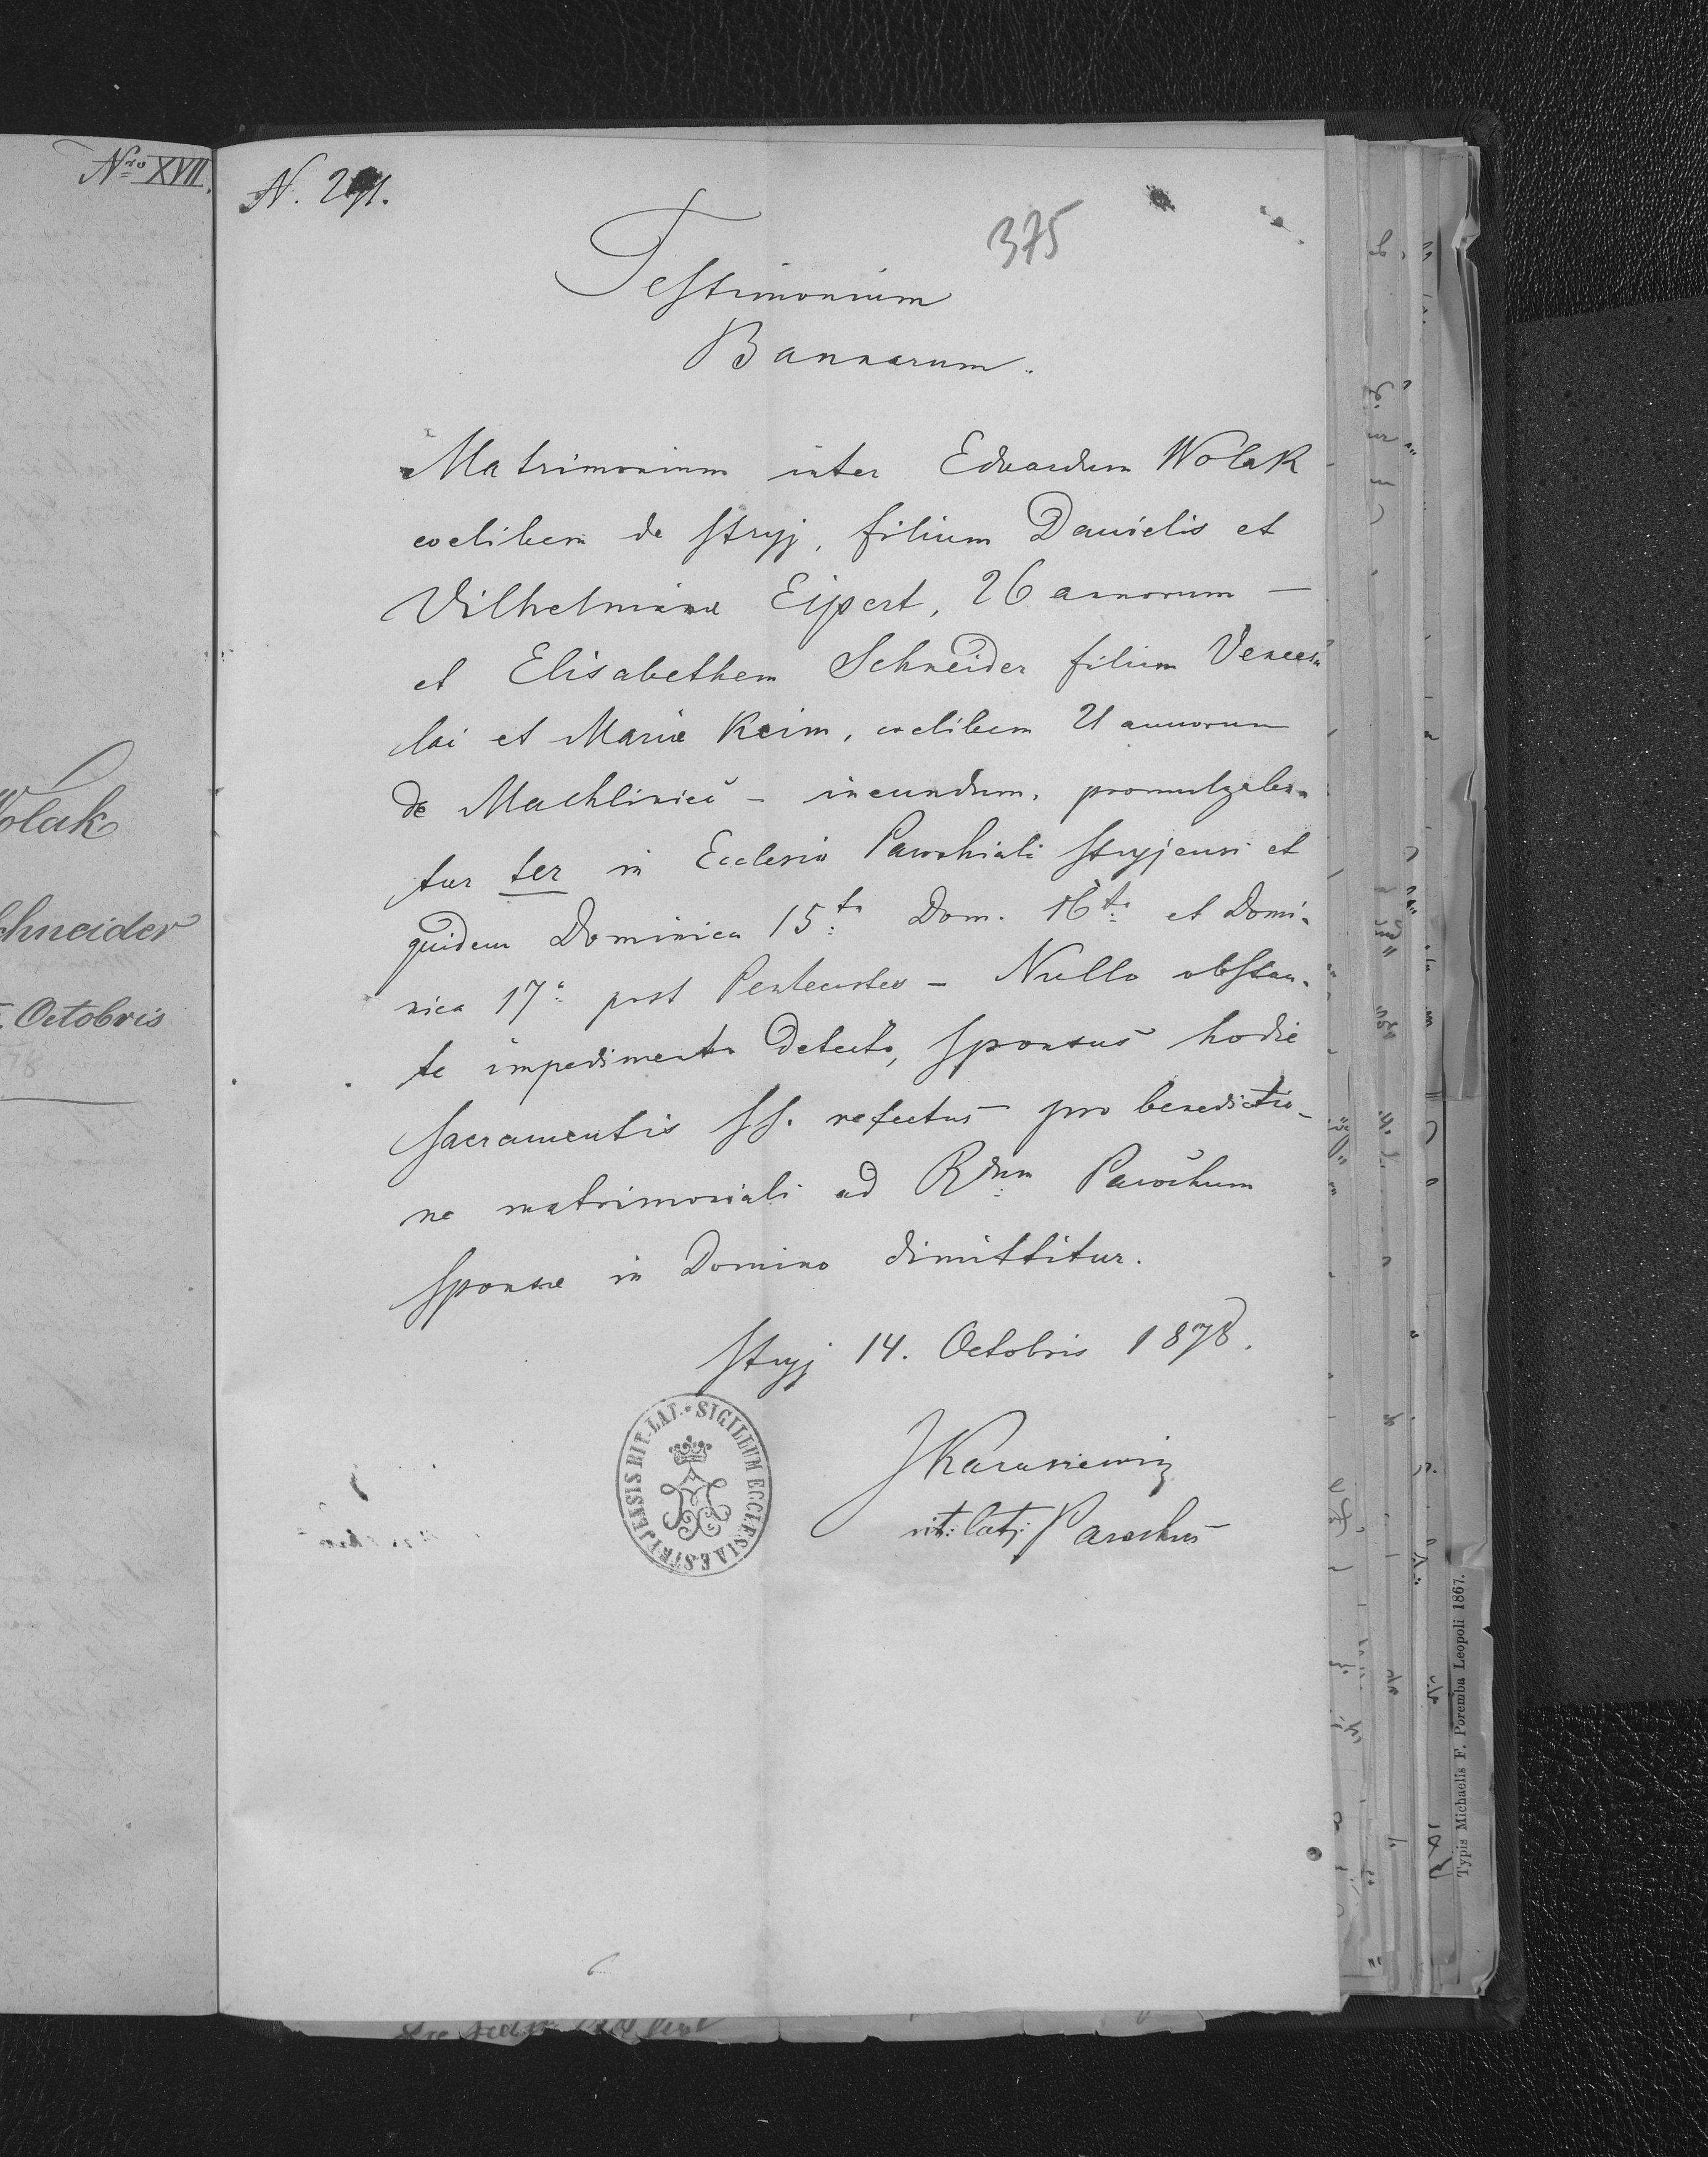 Nro XVII.
Wolak
Schneider
Octobris
N. 291.
375
Testimonium
Bannarum.
Matrimonium inter Eduardum Wolak
coelibem de Stryj, filium Danielis et
Vilhelminae Eipert, 26 annorum –
et Elisabethem Schneider filiam Vences-
lai et Mariae Keim, coelibem 21 annorum
de Machliniec – ineundum, promulgaba-
tur ter in Ecclesia Parochiali Stryjensi et
quidem Dominica 15ta Dom. 16ta et Domi-
nica 17a post Pentecostes – Nullo obstan-
te impedimento detecto, sponsus hodie
Sacramentis SS. refectus pro benedictio-
ne matrimoniali ad Rdum Parochum
sponsae in Domino dimittitur.
Stryj 14. Octobris 1878.
SIGILLUM ECCLESIAE STRYJENSIS RIT. LAT.
JKarasiewicz
rit: lat: Parochus
Typis Michaelis F. Poremba Leopoli 1867.